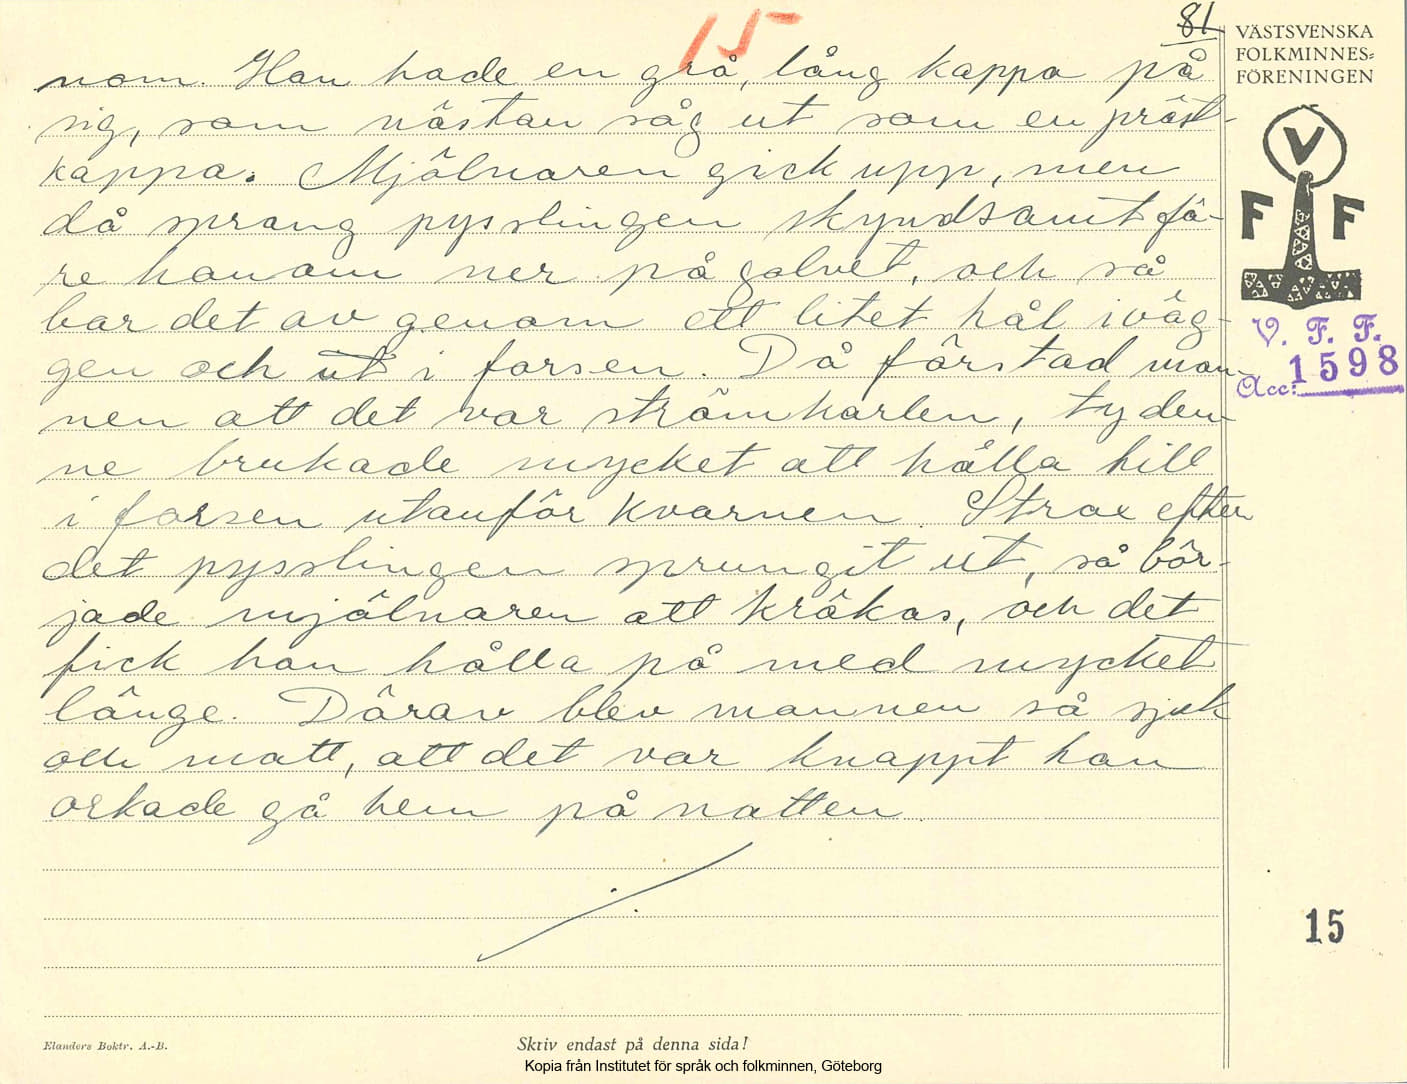 15
81
VÄSTSVENSKA
FOLKMINNES=
FÖRENINGEN
nom. Han hade en grå, lång kappa på
sig, som nästan såg ut som en präst-
kappa. Mjölnaren gick upp, men
då sprang pysslingen skyndsamt fö-
re honom ner på golvet, och så
bar det av genom ett litet hål i väg-
gen och ut i forsen. Då förstod man-
nen att det var strömkarlen, ty den-
ne brukade mycket att hålla till
i forsen utanför kvarnen. Strax efter
det pysslingen sprungit ut, så bör-
jade mjölnaren att kräkas, och det
fick han hålla på med mycket
länge. Därav blev mannen så sjuk
och matt, att det var knappt han
orkade gå hem på natten.
V
F F
V. F. F.
Acc: 1598
15
Elanders Boktr. A.-B.
Skriv endast på denna sida!
Kopia från Institutet för språk och folkminnen, Göteborg